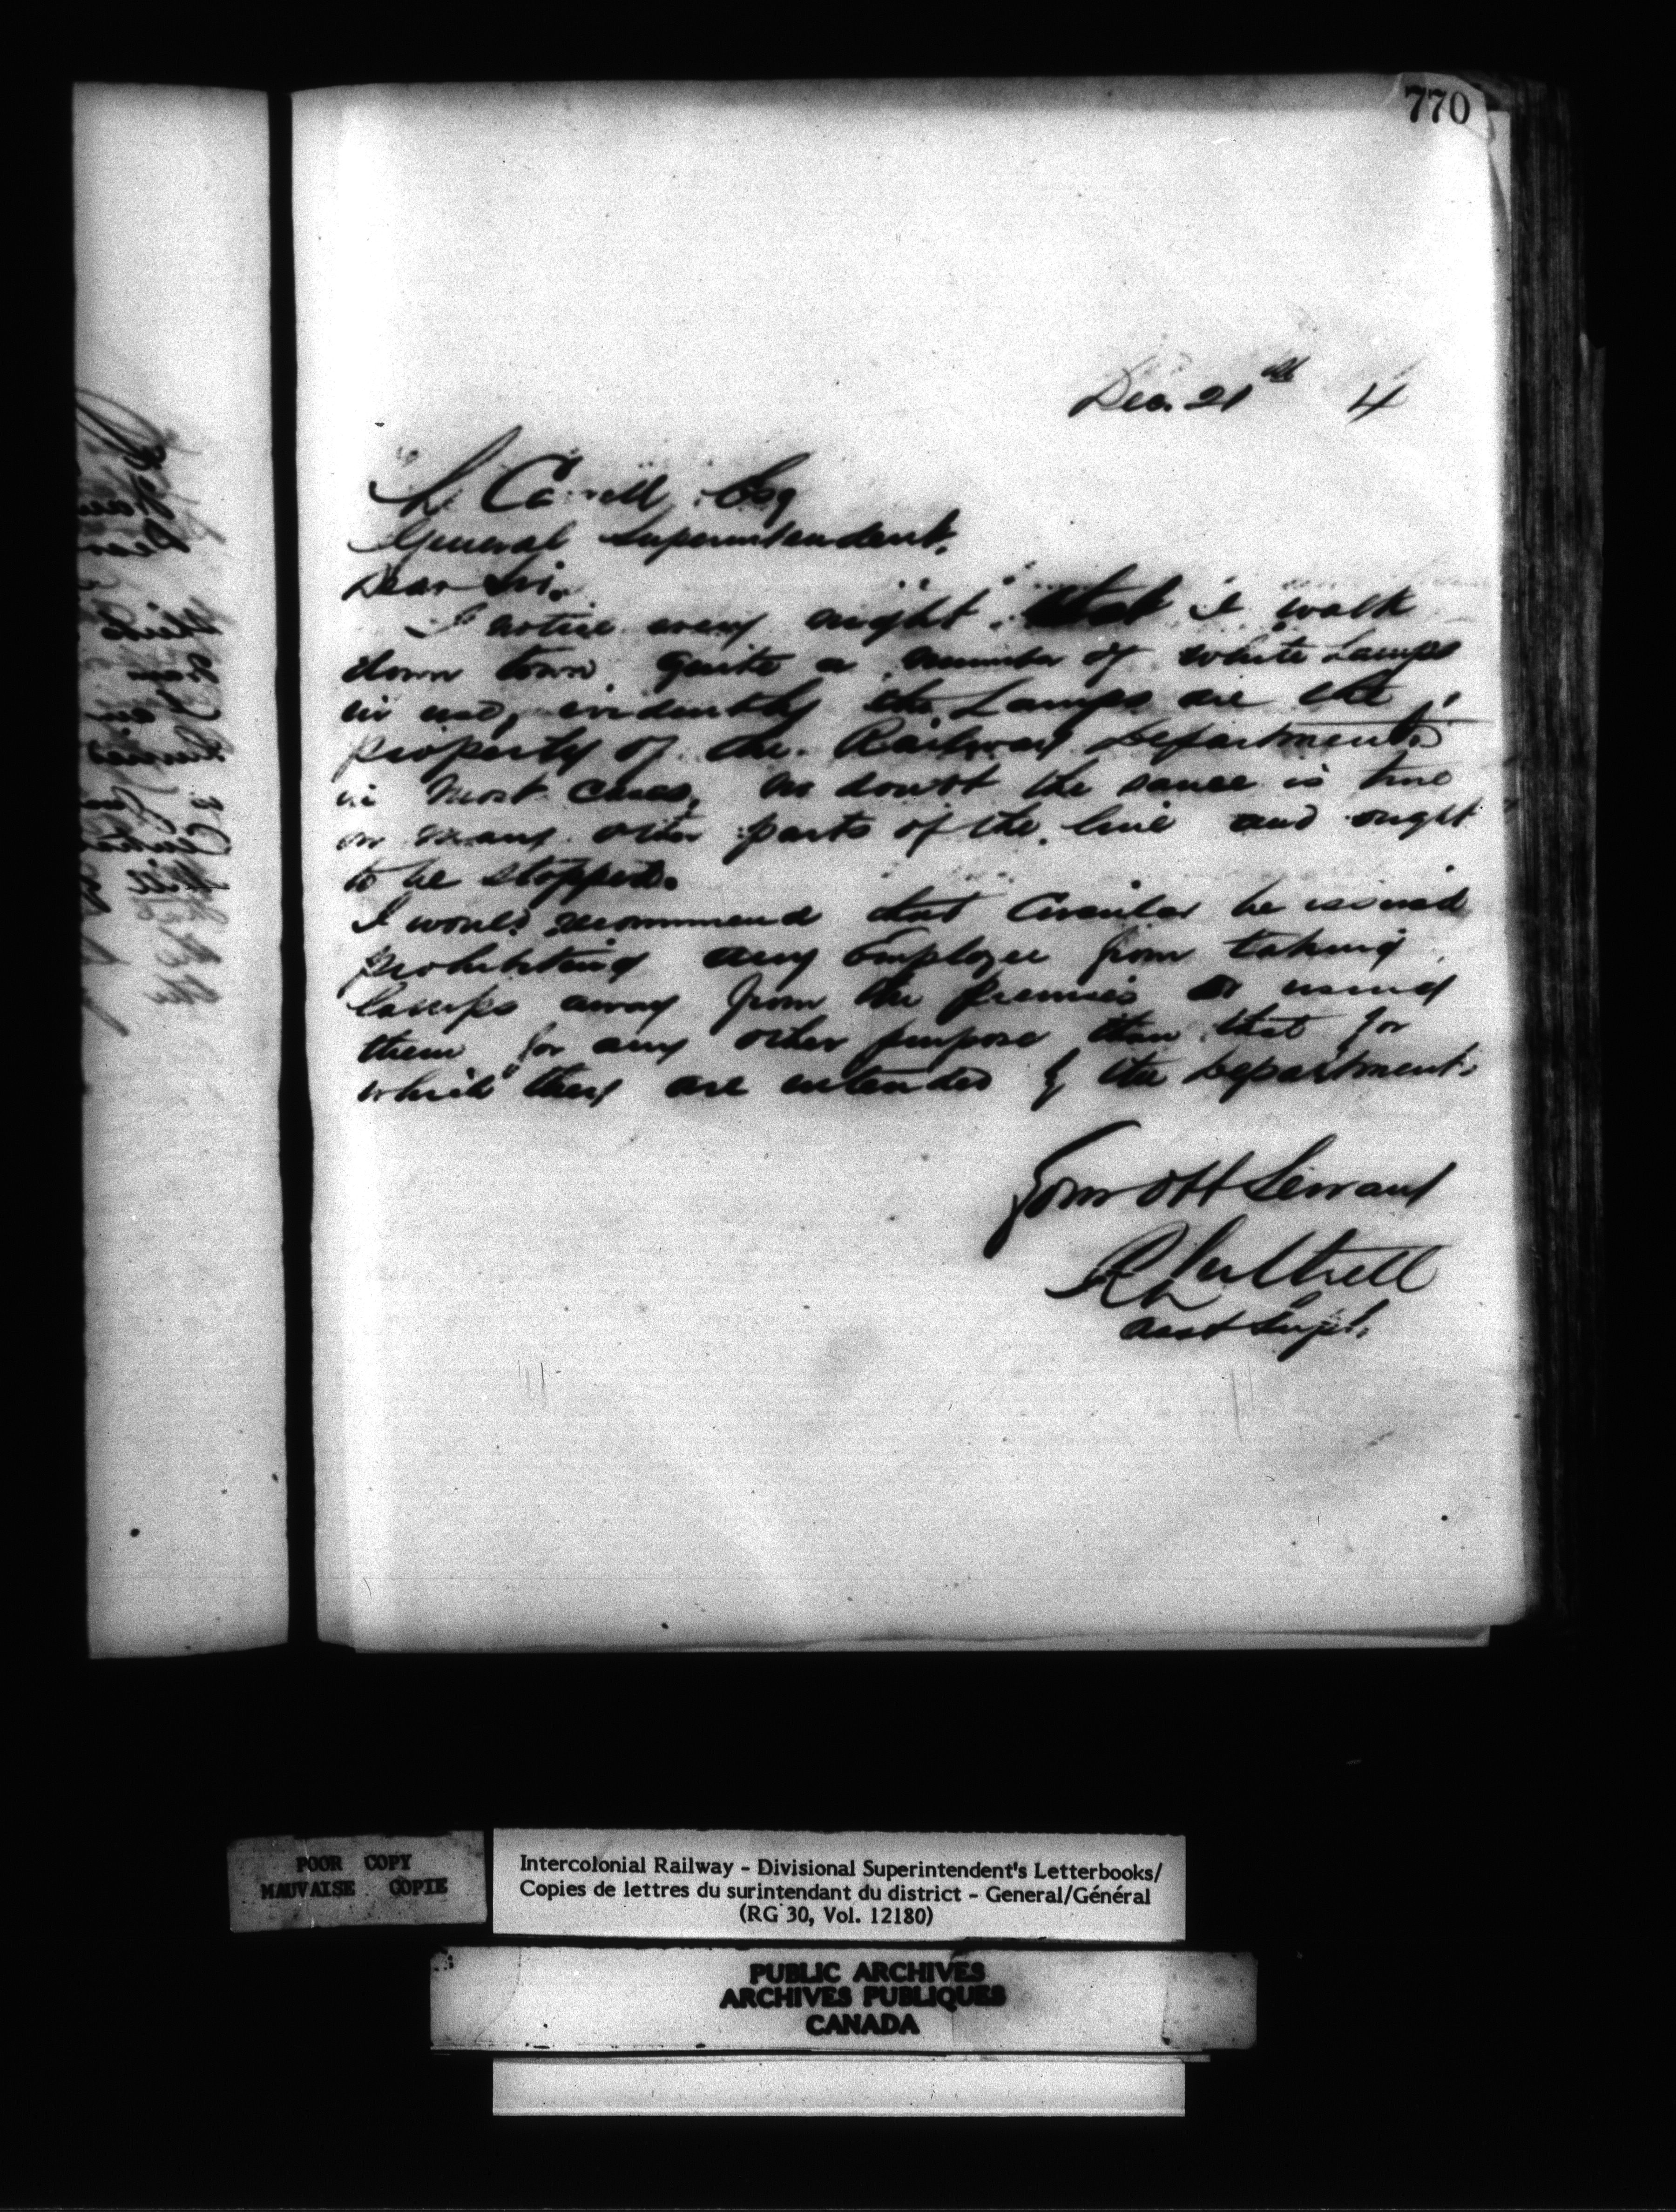 770
Dec. 21st 4
L. Carvell Esq
General Superintendent,
Dear Sir.
I notice every night that I walk
down town quite a number of white Lamps
in use, evidently the Lamps are the
property of the Railway Department
in most cases, no doubt the same is true
on many other parts of the line and ought
to be stopped.
I would recommend that Circular be issued
prohibiting any Employee from taking
lamps away from the premises or using
them for any other purpose than that for
which they are intended by the Department.
Your Obt Servant
R Luttrell
Asst Supt.
POOR COPY
MAUVAISE COPIE
Intercolonial Railway - Divisional Superintendent's Letterbooks/
Copies de lettres du surintendant du district - General/Général
(RG 30, Vol. 12180)
PUBLIC ARCHIVES
ARCHIVES PUBLIQUES
CANADA